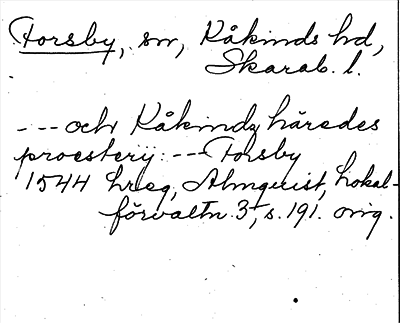 Forsby, sn, Kåkinds hd,
Skarab. l.
--- och Kåkindz häredes
proesterij: --- Forsby
1544 hreg, Almquist, Lokal-
förvaltn. 3, s. 191. orig.